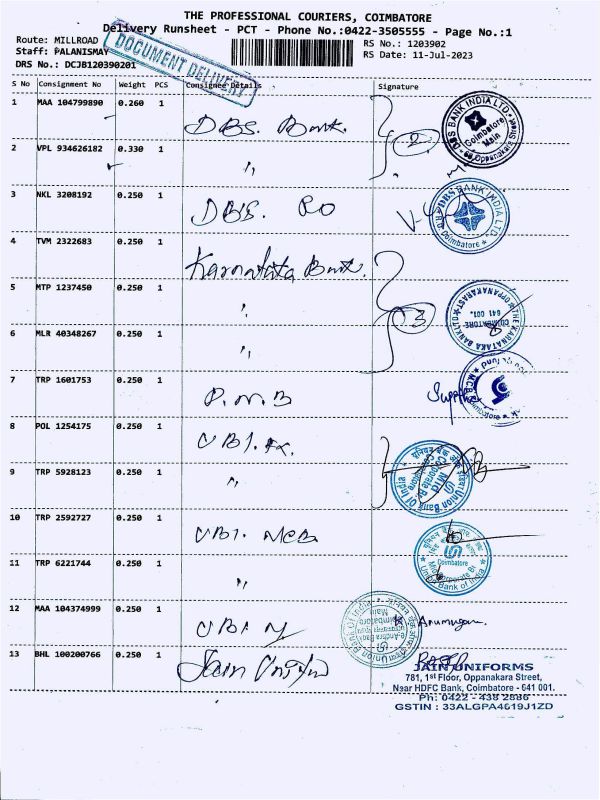 THE PROFESSIONAL COURIERS, COIMBATORE
Delivery Runsheet - PCT - Phone No.:0422-3505555 - Page No.:1
Route: MILLROAD
RS No.: 1203902
Staff: PALANISMAY
RS Date: 11-Jul-2023
DRS No.: DCJB120390201
DOCUMENT DELIVERY
S No Consignment No Weight PCS Consignee Details Signature
1 MAA 104799890 0.260 1 DBS. Bank. 2
DBS BANK INDIA LTD
Coimbatore
Main
Oppanakara Street
2 VPL 934626182 0.330 1 "
3 NKL 3208192 0.250 1 DBS. RO
DBS BANK INDIA LTD.
Coimbatore
4 TVM 2322683 0.250 1 Karnataka Bank.
5 MTP 1237450 0.250 1 " 3
THE KARNATAKA BANK LTD
COIMBATORE
641 001.
6 MLR 40348267 0.250 1 "
7 TRP 1601753 0.250 1 P.N.B
8 POL 1254175 0.250 1
9 TRP 5928123 0.250 1 "
Union Bank of India
10 TRP 2592727 0.250 1 UBI. MCB
11 TRP 6221744 0.250 1 "
Coimbatore
Union Bank of India
12 MAA 104374999 0.250 1 K. Arumugam.
13 BHL 100200766 0.250 1 Jain Uniform
JAIN UNIFORMS
781, 1st Floor, Oppanakara Street,
Near HDFC Bank, Coimbatore - 641 001.
Ph: 0422 - 438 2886
GSTIN : 33ALGPA4619J1ZD